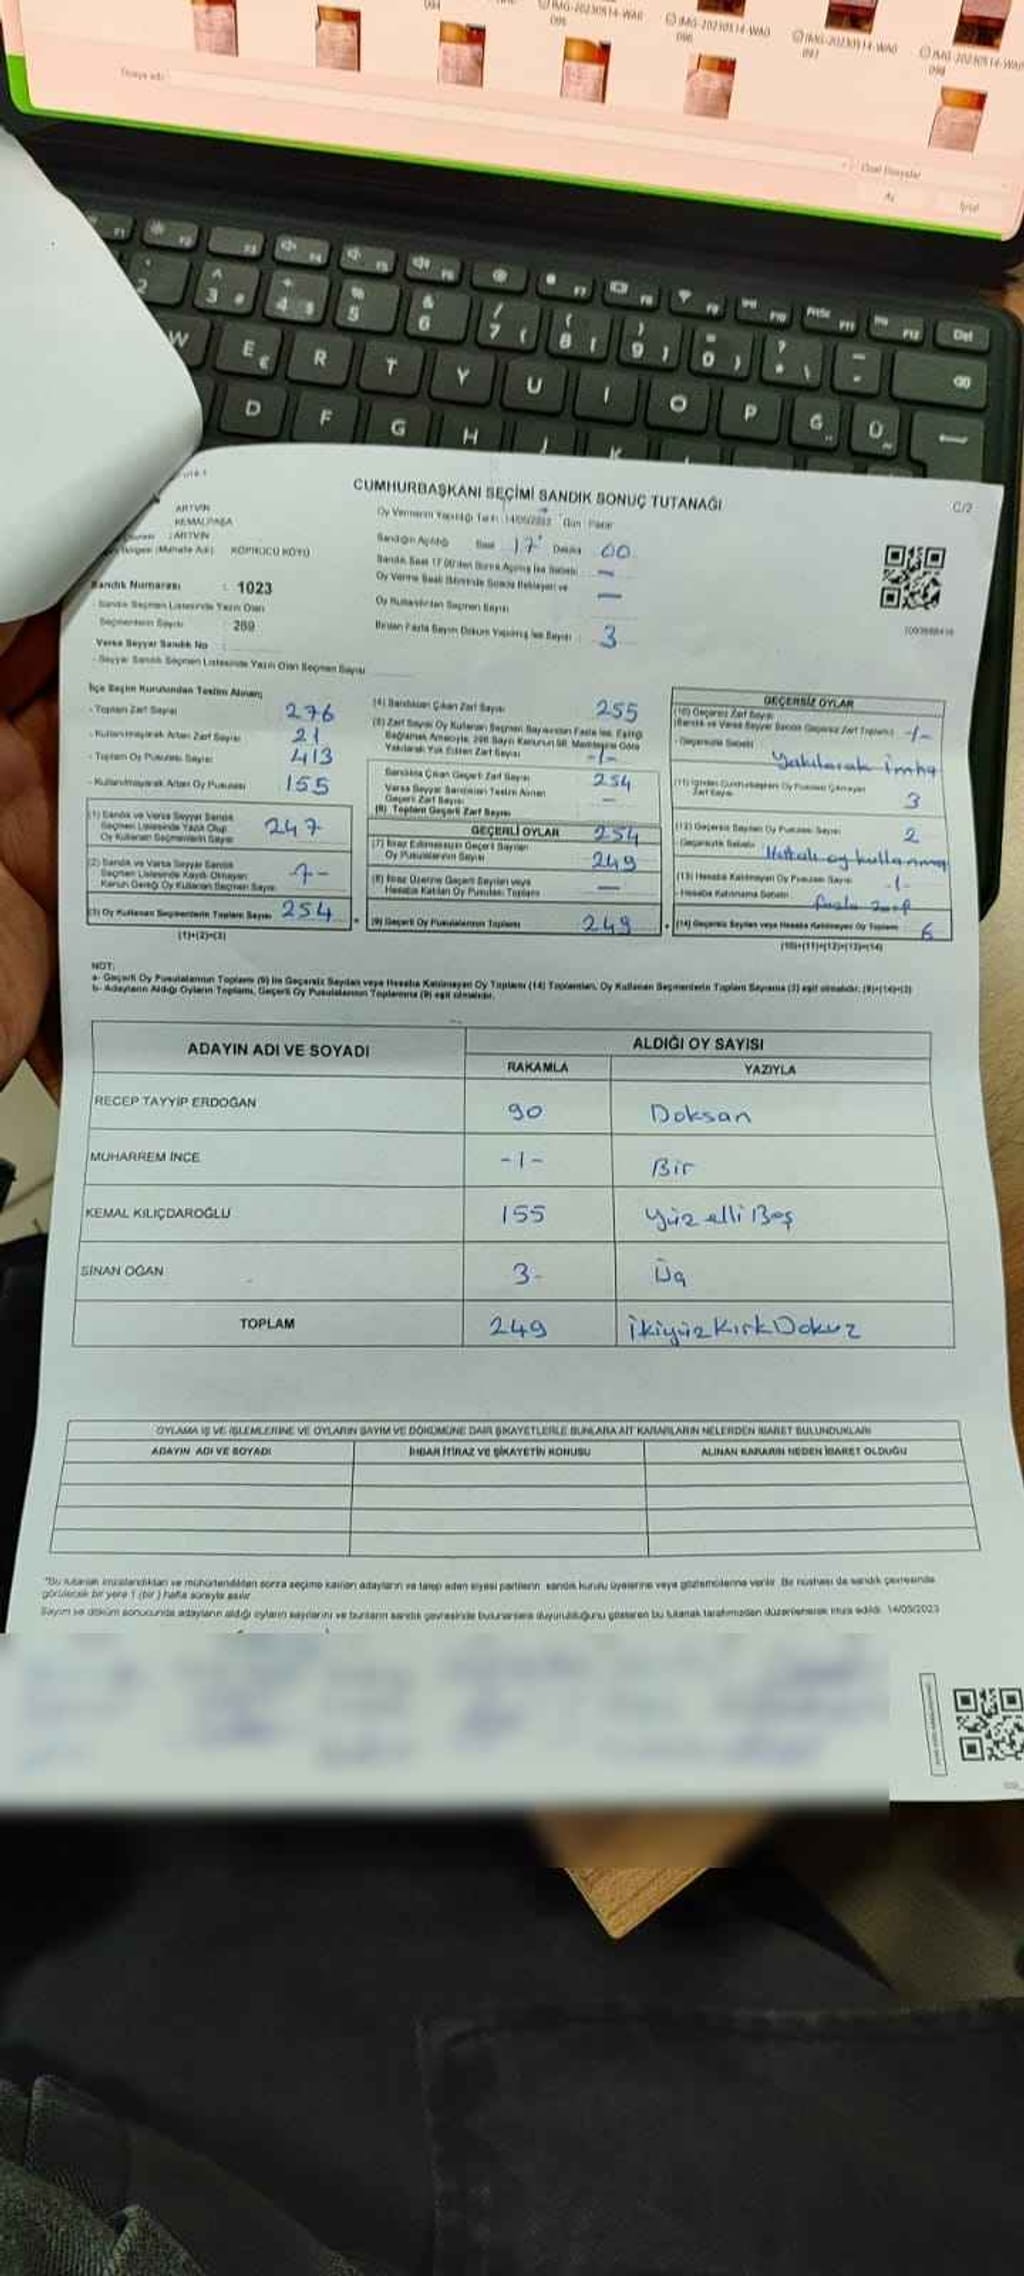 IMG-20230514-WA0
095
IMG-20230514-WA0
096
IMG-20230514-WA0
097
IMG-20230514-WA0
098
Dosya adı:
Özel Dosyalar
Aç
İptal
F1 F2 F3 F4 F5 F6 F7 F8 F9 F10 PrtSc F11 Ins F12 Del
2 3 4 5 6 7 8 9 0
W E € R T Y U I O P Ğ Ü
D F G H J K
CUMHURBAŞKANI SEÇİMİ SANDIK SONUÇ TUTANAĞI
C/2
ARTVİN
KEMALPAŞA
: ARTVİN
KÖPRÜCÜ KÖYÜ
Sandık Numarası : 1023
Sandık Seçmen Listesinde Yazılı Olan
Seçmenlerin Sayısı 289
Varsa Seyyar Sandık No :
- Seyyar Sandık Seçmen Listesinde Yazılı Olan Seçmen Sayısı
Oy Vermenin Yapıldığı Tarih: 14/05/2023 Gün: Pazar
Sandığın Açıldığı Saat 17 Dakika 00
Sandık Saat 17.00'den Sonra Açılmış İse Sebebi : —
Oy Verme Saati Bitiminde Sırada Bekleyen ve
Oy Kullandırılan Seçmen Sayısı —
Birden Fazla Sayım Döküm Yapılmış İse Sayısı : 3
İlçe Seçim Kurulundan Teslim Alınan;
- Toplam Zarf Sayısı 276
- Kullanılmayarak Artan Zarf Sayısı 21
- Toplam Oy Pusulası Sayısı 413
- Kullanılmayarak Artan Oy Pusulası 155
(1) Sandık ve Varsa Seyyar Sandık
Seçmen Listesinde Yazılı Olup
Oy Kullanan Seçmenlerin Sayısı 247
(2) Sandık ve Varsa Seyyar Sandık
Seçmen Listesinde Kayıtlı Olmayan
Kanun Gereği Oy Kullanan Seçmen Sayısı 7-
(3) Oy Kullanan Seçmenlerin Toplam Sayısı 254
(1)+(2)=(3)
(4) Sandıktan Çıkan Zarf Sayısı 255
(5) Zarf Sayısı Oy Kullanan Seçmen Sayısından Fazla İse, Eşitliği
Sağlamak Amacıyla, 298 Sayılı Kanunun 98. Maddesine Göre
Yakılarak Yok Edilen Zarf Sayısı -1-
Sandıkta Çıkan Geçerli Zarf Sayısı 254
Varsa Seyyar Sandıktan Teslim Alınan
Geçerli Zarf Sayısı —
(6) Toplam Geçerli Zarf Sayısı 254
GEÇERLİ OYLAR
(7) İtiraz Edilmeksizin Geçerli Sayılan
Oy Pusulalarının Sayısı 249
(8) İtiraz Üzerine Geçerli Sayılan veya
Hesaba Katılan Oy Pusulası Toplamı —
(9) Geçerli Oy Pusulalarının Toplamı 249
GEÇERSİZ OYLAR
(10) Geçersiz Zarf Sayısı
(Sandık ve Varsa Seyyar Sandık Geçersiz Zarf Toplamı) -1-
- Geçersizlik Sebebi Yakılarak imha
(11) İçinden Cumhurbaşkanı Oy Pusulası Çıkmayan
Zarf Sayısı 3
(12) Geçersiz Sayılan Oy Pusulası Sayısı 2
- Geçersizlik Sebebi Hatalı oy kullanma
(13) Hesaba Katılmayan Oy Pusulası Sayısı -1-
- Hesaba Katılmama Sebebi fazla zarf
(14) Geçersiz Sayılan veya Hesaba Katılmayan Oy Toplamı 6
(10)+(11)+(12)+(13)=(14)
NOT:
a- Geçerli Oy Pusulalarının Toplamı (9) ile Geçersiz Sayılan veya Hesaba Katılmayan Oy Toplamı (14) Toplamları, Oy Kullanan Seçmenlerin Toplam Sayısına (3) eşit olmalıdır. (9)+(14)=(3)
b- Adayların Aldığı Oyların Toplamı, Geçerli Oy Pusulalarının Toplamına (9) eşit olmalıdır.
ADAYIN ADI VE SOYADI ALDIĞI OY SAYISI
RAKAMLA YAZIYLA
RECEP TAYYİP ERDOĞAN 90 Doksan
MUHARREM İNCE -1- Bir
KEMAL KILIÇDAROĞLU 155 Yüz elli Beş
SİNAN OĞAN 3- Üç
TOPLAM 249 İkiyüzKırkDokuz
OYLAMA İŞ VE İŞLEMLERİNE VE OYLARIN SAYIM VE DÖKÜMÜNE DAİR ŞİKAYETLERLE BUNLARA AİT KARARLARIN NELERDEN İBARET BULUNDUKLARI
ADAYIN ADI VE SOYADI İHBAR İTİRAZ VE ŞİKAYETİN KONUSU ALINAN KARARIN NEDEN İBARET OLDUĞU
*Bu tutanak imzalandıktan ve mühürlendikten sonra seçime katılan adayların ve talep eden siyasi partilerin sandık kurulu üyelerine veya gözlemcilerine verilir. Bir nüshası da sandık çevresinde
görülecek bir yere 1 (bir) hafta süreyle asılır.
Sayım ve döküm sonucunda adayların aldığı oyların sayılarını ve bunların sandık çevresinde bulunanlara duyurulduğunu gösteren bu tutanak tarafımızdan düzenlenerek imza edildi. 14/05/2023